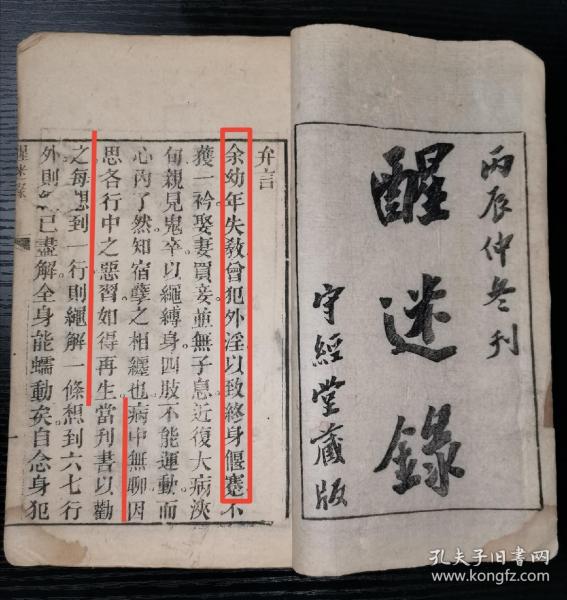 丙辰仲冬刊
醒迷錄
守經堂藏版
弁言
余幼年失敎曾犯外淫以致終身偃蹇不
獲一衿娶妻買妾並無子息近復大病浹
旬親見鬼卒以繩縛身四肢不能運動而
心內了然知宿孽之相纒也病中無聊因
思各行中之惡習如得再生當刊書以勸
之每想到一行則繩解一條想到六七行
外則已盡解全身能蠕動矣自念身犯
醒迷錄
孔夫子旧书网
www.kongfz.com